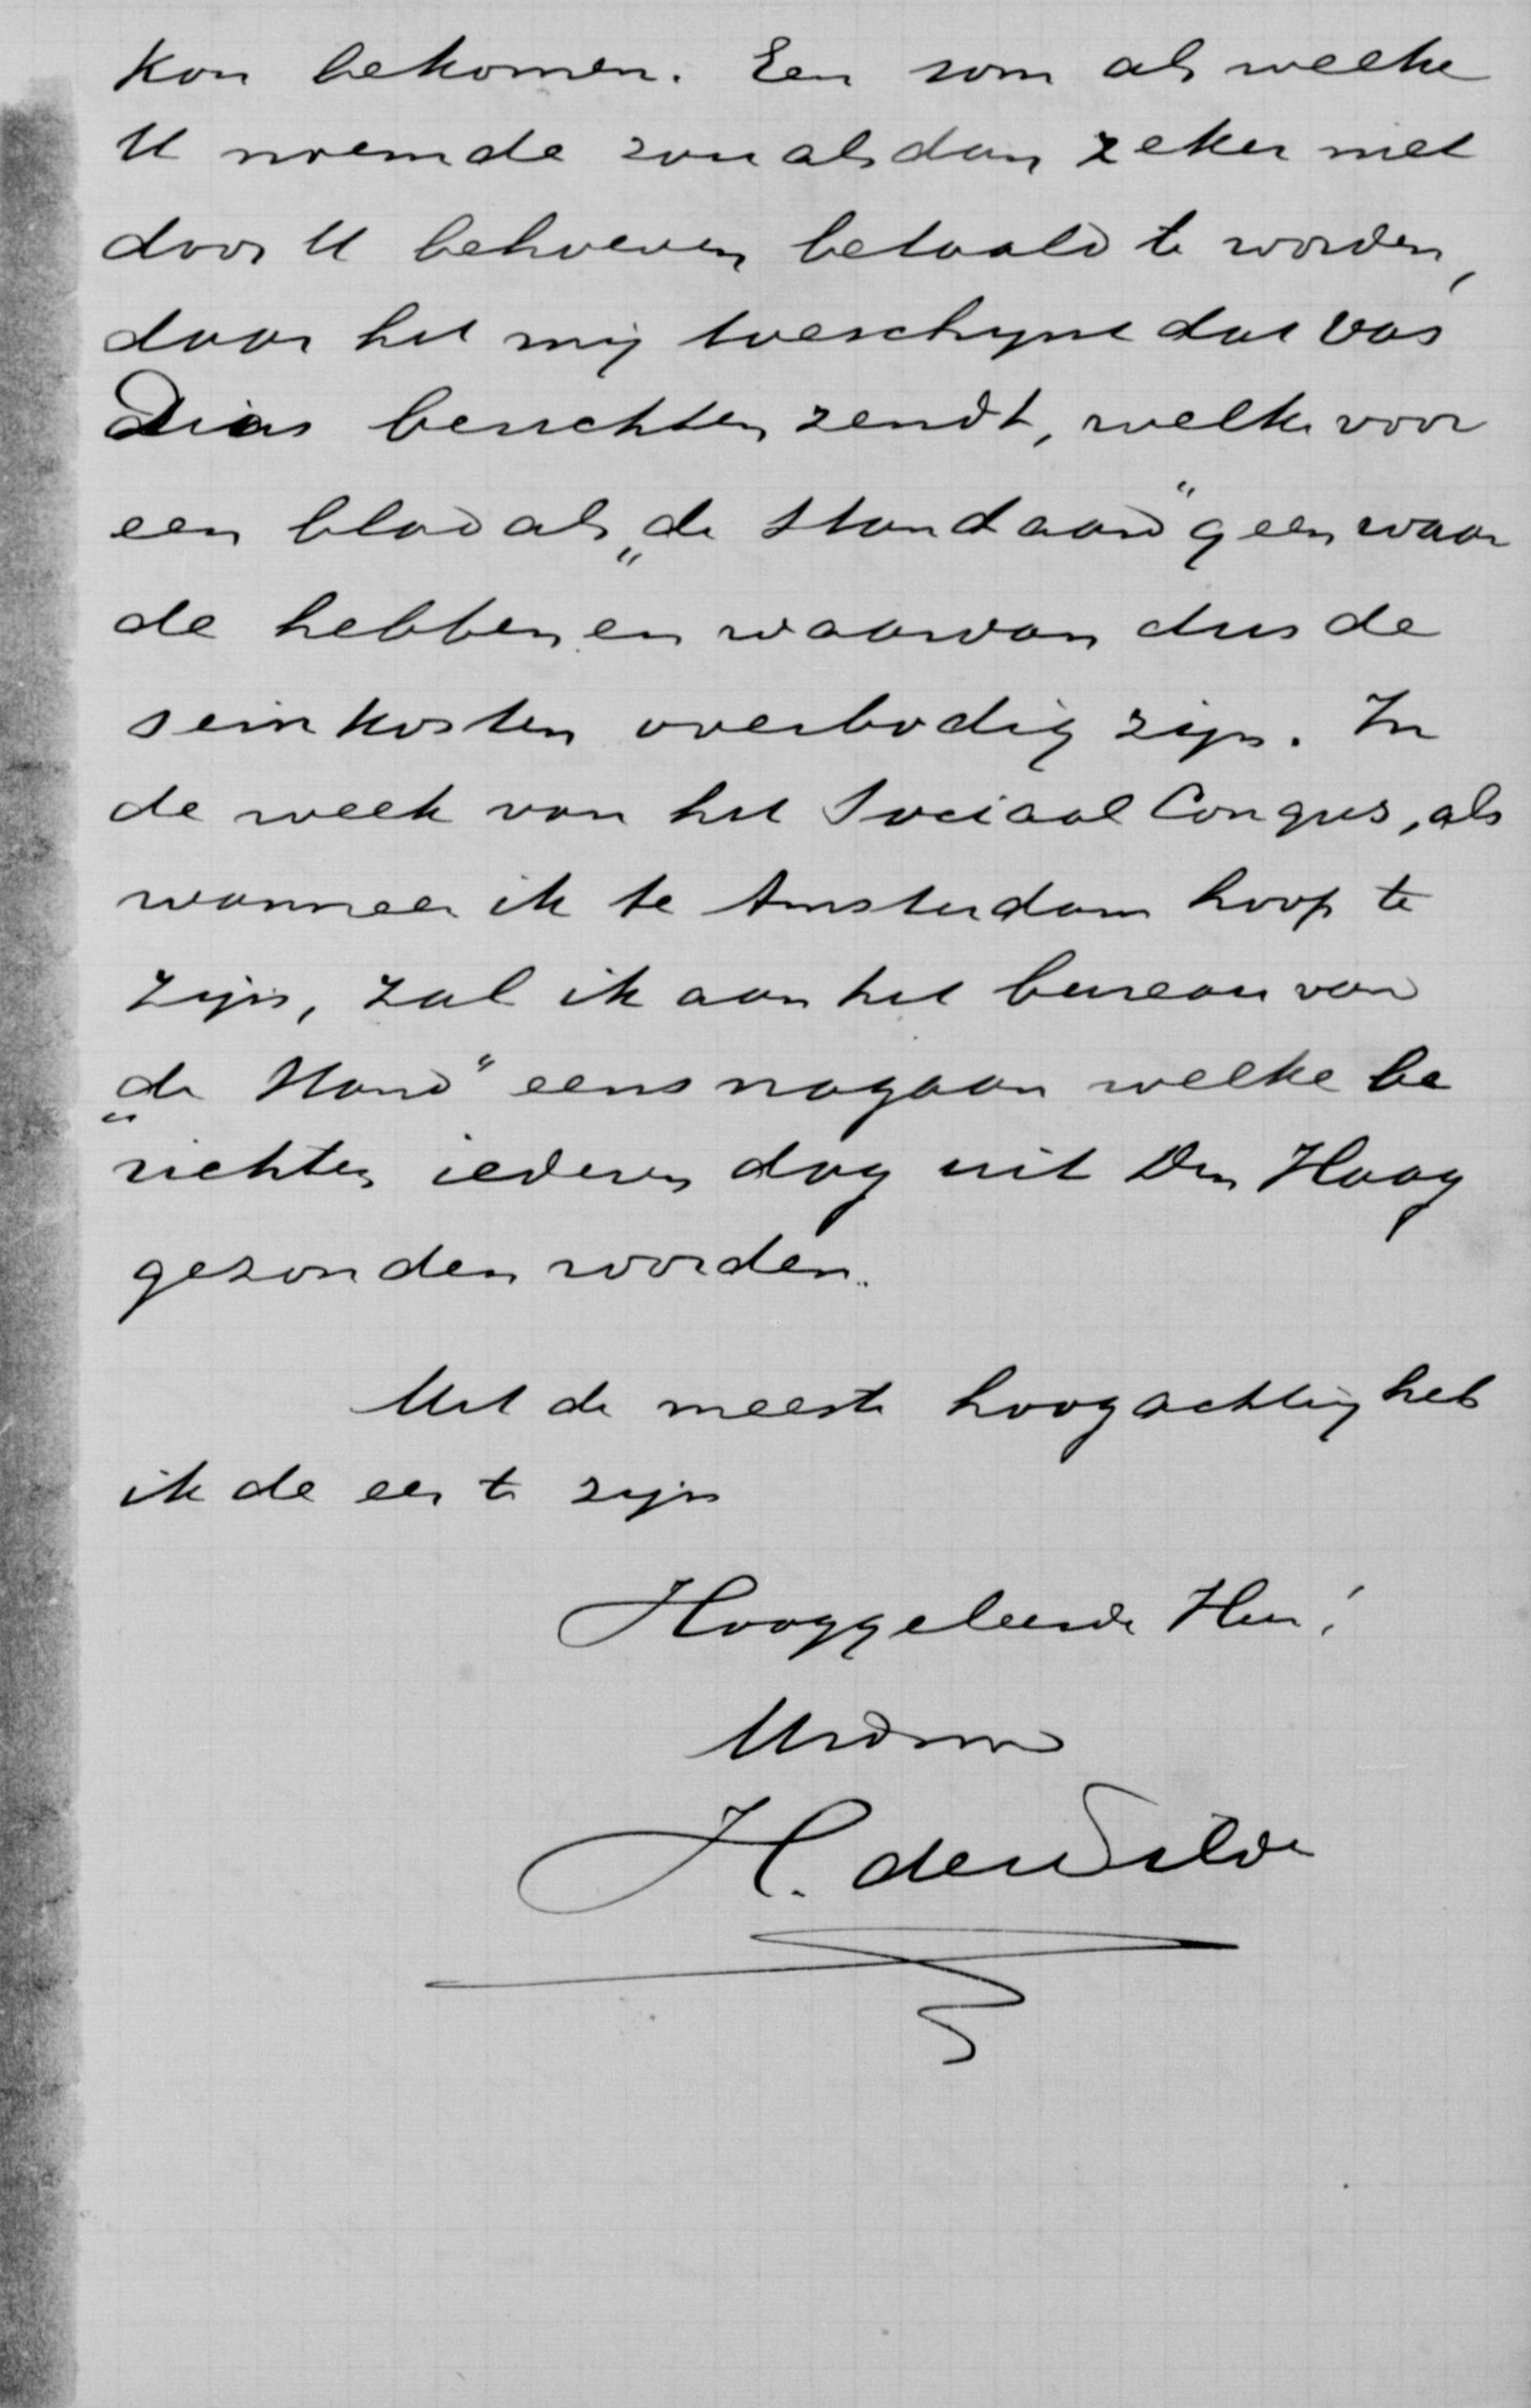 kon bekomen. Een som als welke
U noemde zou alsdan zeker niet
door U behoeven betaald te worden,
daar het mij toeschijnt dat Vas
Dias berichten zendt, welke voor
een blad als „de Standaard” geen waar
de hebben en waarvan dus de
seinkosten overbodig zijn. In
de week van het Sociaal Congres, als
wanneer ik te Amsterdam hoop te
zijn, zal ik aan het bureau van
„de Stand” eens nagaan welke be
richten iederen dag uit Den Haag
gezonden worden.
Met de meeste hoogachting heb
ik de eer te zijn
Hooggeleerde Heer!
Uwdnr
H. de Wilde